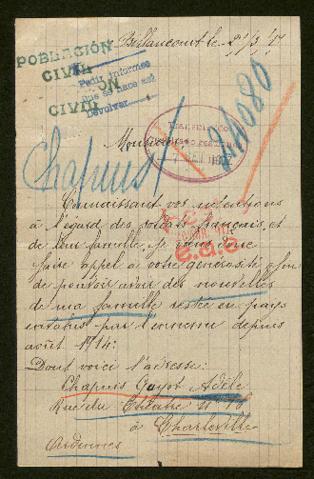 Billancourt le 21/3/17
POBLACIÓN
CIVIL
Pedir informes
CIVIL
Devolver
Monsieur
Chapuis
Connaissant vos
à l'égard des soldats français et
de leur famille je viens
faire appel à votre générosité afin
de pouvoir avoir des nouvelles
de ma famille restée en pays
envahis par l'ennemie depuis
août 1914:
Dont voice l'adresse:
Chapuis Guyot Adèle
Rue du Théâtre n°
à Charleville
Ardennes